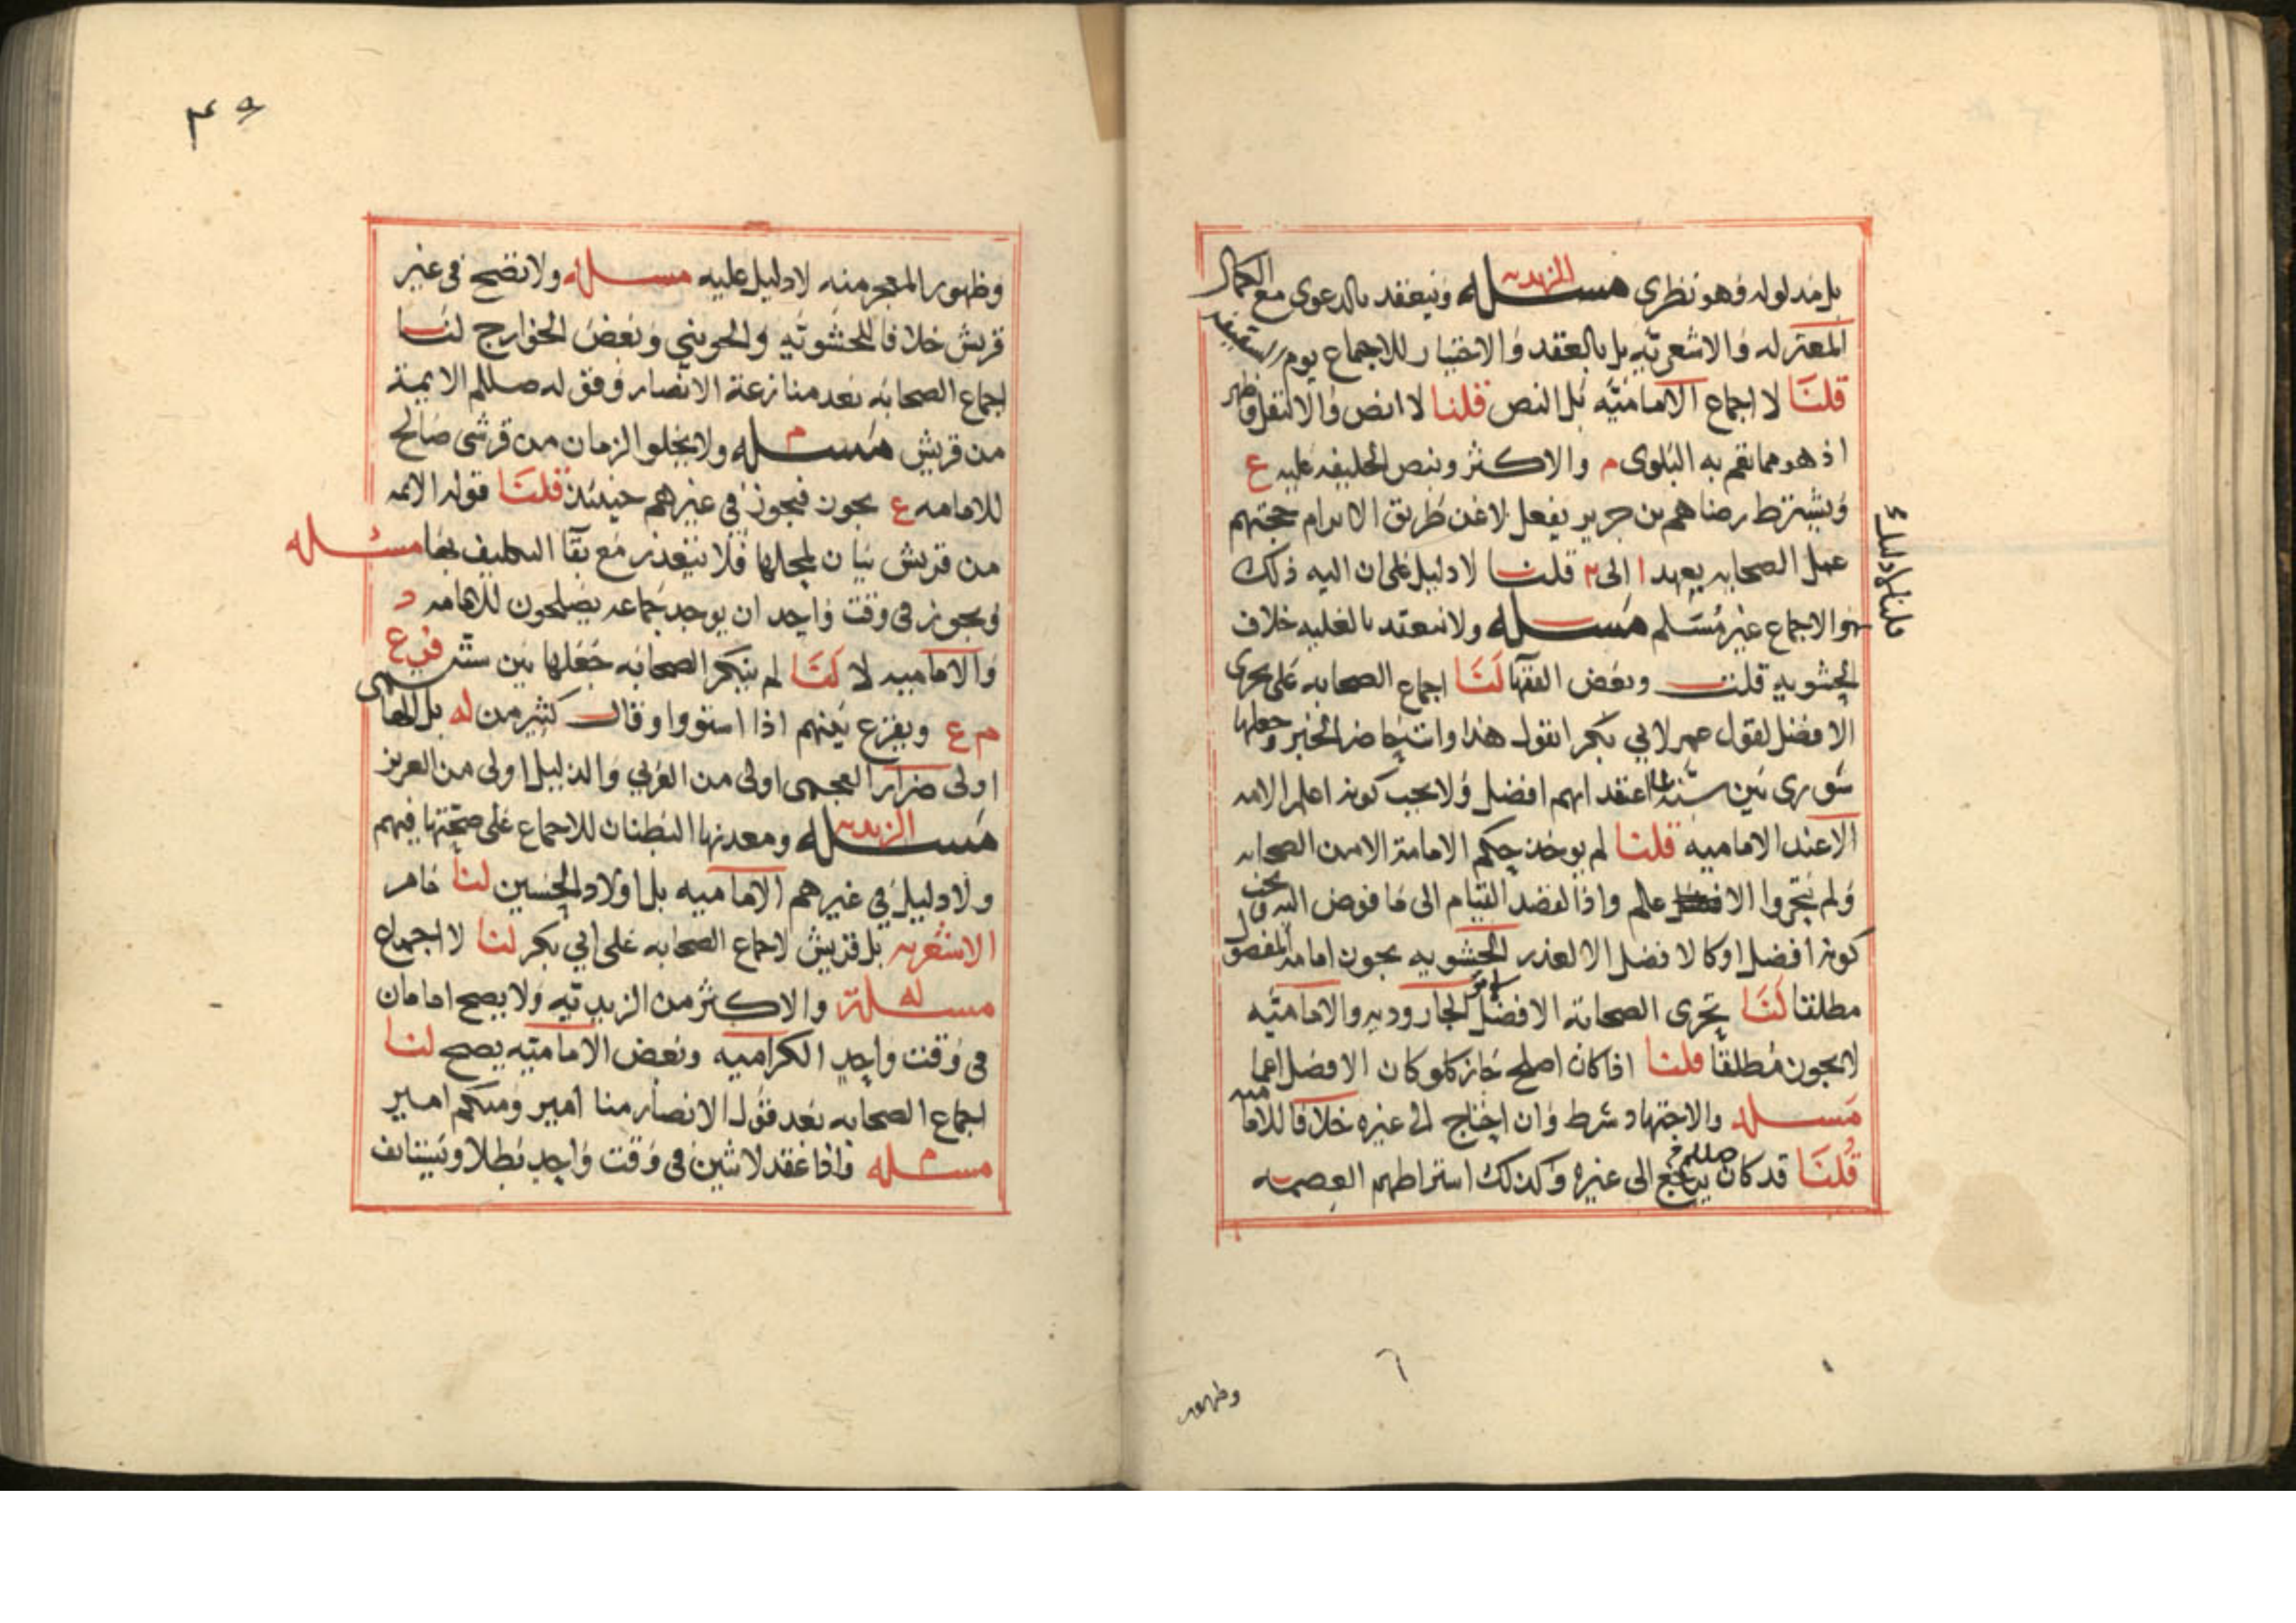 بل مدلوله فهو نظري مسئله الزيديه وينعقد بالدعوى مع الكمال
المعتزله والاشعريه بل بالعقد والاختيار للاجماع يوم السقيفه
قلنا لا اجماع الاماميه بل النص قلنا لا نص والا لنقل وظهر
اذ هو مما تعم به البلوى م والاكثر وبنص الخليفه عليه ع
ويشترط رضاهم بن جرير يفعل لا عن طريق الابرام حجتهم
عمل الصحابه بعهد ا الى ٢ قلنا لا دليل على ان اليه ذلك
والاجماع غير مسلم مسئله ولا تنعقد بالغلبه خلاف
الحشويه قلت وبعض الفقها لنا اجماع الصحابه على تحرى
الافضل لقول عمر لابي بكر اتقول هذا وانت حاضر الخبر وجعلها
شورى بين سته اعتقد انهم افضل ولا يجب كونه اعلم الامه
الا عند الاماميه قلنا لم يوخذ حكم الامامة الا من الصحابه
ولم يتحروا الا علم واذ القصد القيام الى ما فوض اليه يجب
كونه افضل او كالافضل الا لعذر الحشويه يجوز امامة المفضول
مطلقا لنا تحرى الصحابة الافضل الجاروديه والاماميه
لا يجوز مطلقا قلنا اذا كان اصلح جاز كلو كان الافضل اعما
مسئله والاجتهاد شرط وان احتاج الى غيره خلافا للاماميه
قلنا قد كان صللم يرجع الى غيره وكذلك اشتراطهم العصمه
قلنا لا دليل
وظهور
وظهور المعجز منه لا دليل عليه مسئله ولا تصح في غير
قريش خلافا للحشويه والجويني وبعض الخوارج لنا
اجماع الصحابه بعد منازعة الانصار وقوله صللم الايمة
من قريش مسئله م ولا يخلو الزمان من قرشي صالح
للامامه ع يجوز فيجوز في غيرهم حينئذ قلنا قوله الايمه
من قريش بيان لمحلها فلا يتعذر مع بقا التكليف بها مسئله
ويجوز في وقت واحد ان يوجد جماعه يصلحون للامامه د
والاماميه لا لنا لم ينكر الصحابه جعلها بين سته فرع
م ع ويقرع بينهم اذا استووا وقال كثير من له بل الهاشمي
اولى ضرار العجمي اولى من العربي والذليل اولى من العزيز
مسئله الزيديه ومعدنها البطنان للاجماع على صحتها فيهم
ولا دليل في غيرهم الاماميه بل اولاد الحسين لنا ما مر
الاشعريه بل قريش لاجماع الصحابه على ابي بكر لنا لا اجماع
مسئلة له والاكثر من الزيديه ولا يصح امامان
في وقت واحد الكراميه وبعض الاماميه يصح لنا
اجماع الصحابه بعد قول الانصار منا امير ومنكم امير
مسئله م واذا عقد لاثنين في وقت واحد بطلا ويستانف